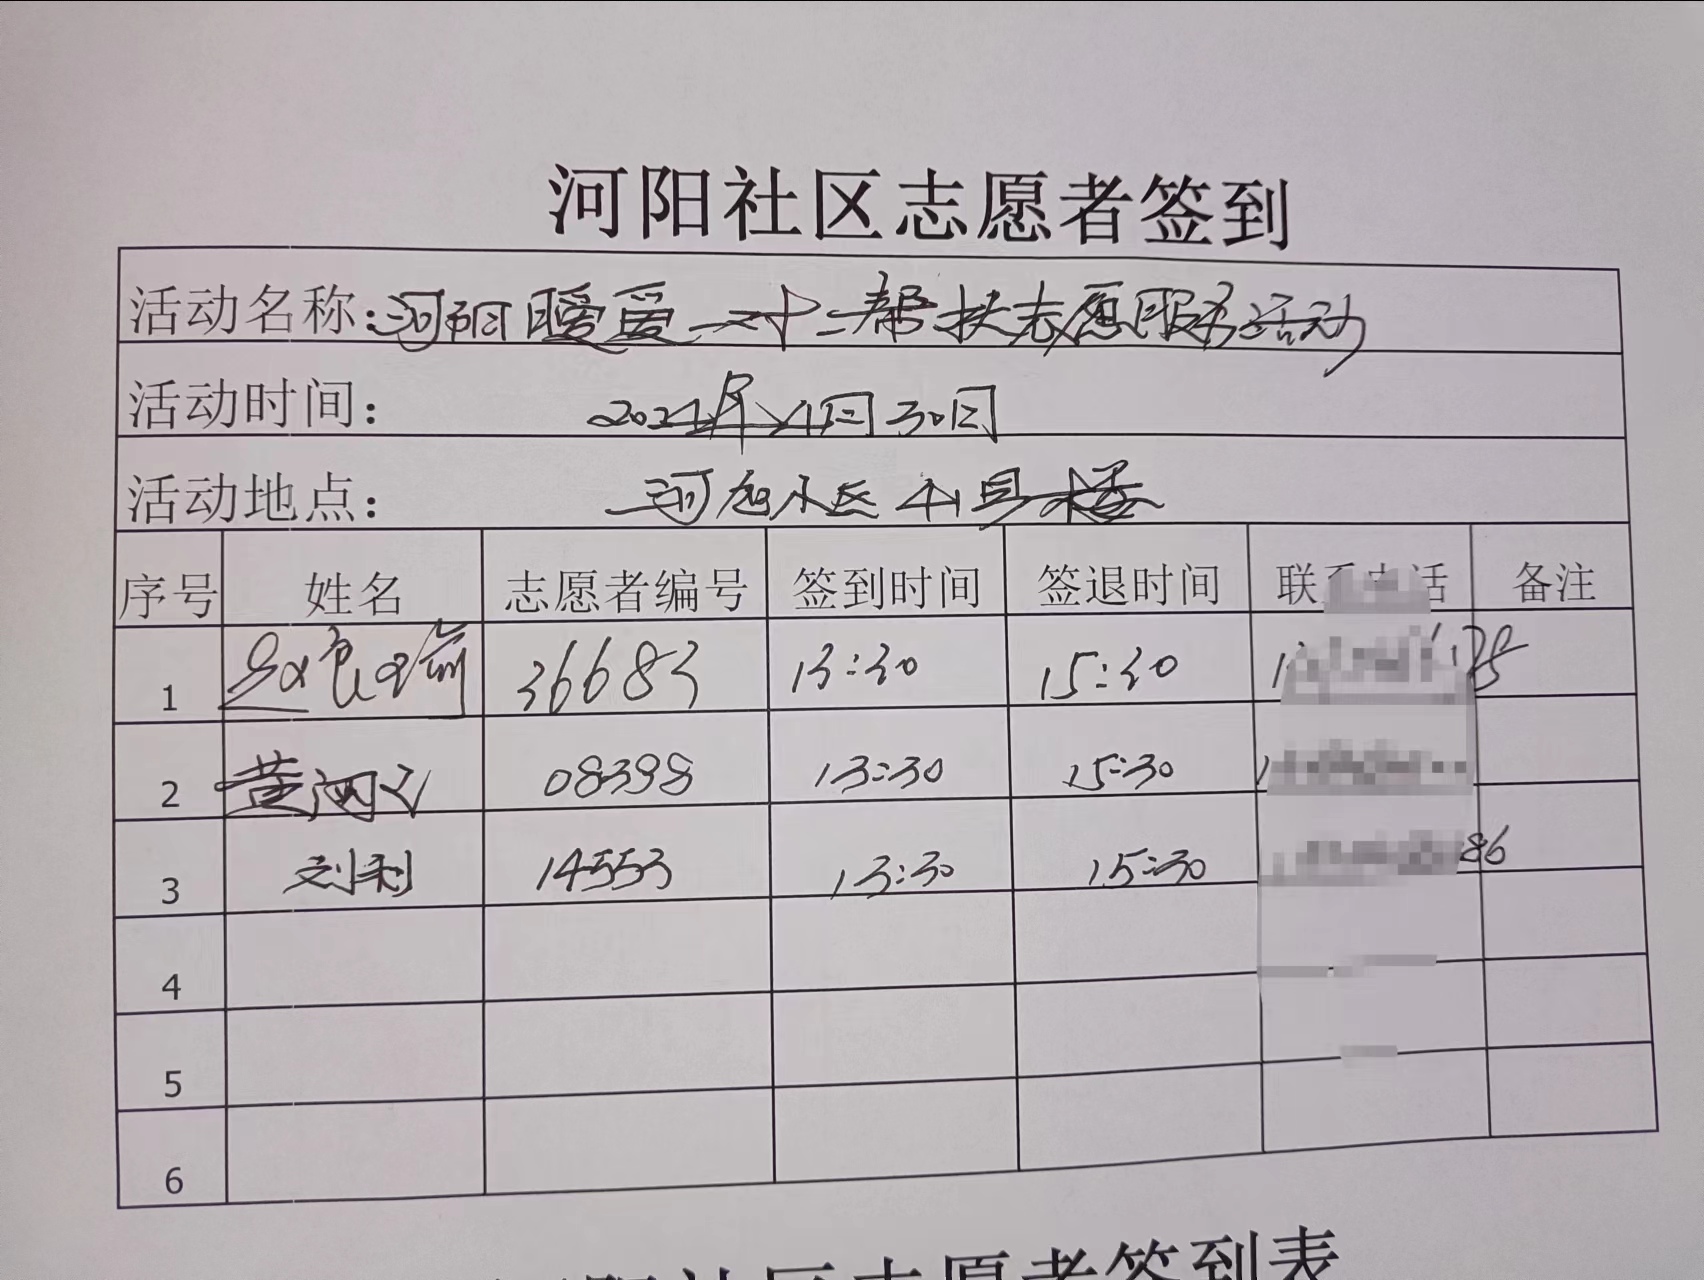 河阳社区志愿者签到
活动名称:河阳暖爱一对一帮扶志愿服务活动
活动时间: 2024年4月30日
活动地点: 小区4号楼
序号 姓名 志愿者编号 签到时间 签退时间 联 话 备注
1 36683 13:30 15:30
2 黄 08398 13:30 15:30
3 刘利 14553 13:30 15:30 86
4
5
6
阳社区志愿者签到表